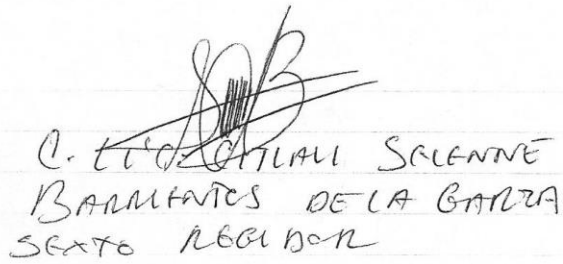 C. LIC. CITLALI SELENNE
BARRIENTOS DE LA GARZA
SEXTO REGIDOR